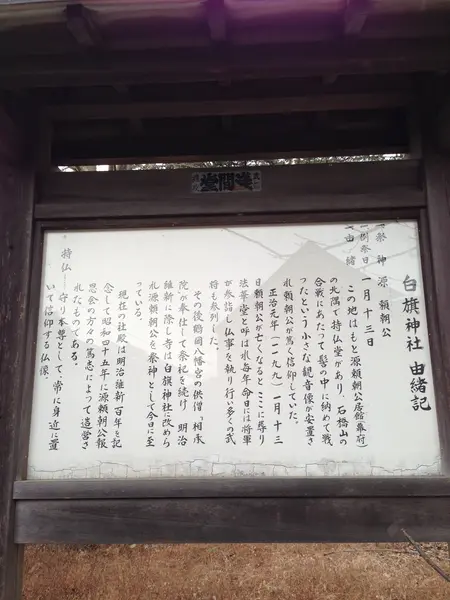 白旗神社 由緒記
(祭神 源 頼朝公
(例祭日) 一月十三日
(由緒
この地はもと源頼朝公居館(幕府)
の北隅で持仏堂があり、石橋山の
合戦にあたって髻の中に納めて戦
ったという小さな観音像が安置さ
れ頼朝公が篤く信仰していた。
正治元年(一一九九)一月十三
日頼朝公が亡くなるとここに葬り
法華堂と呼ばれ毎年命日には将軍
が参詣し仏事を執り行い多くの武
将も参列した。
その後鶴岡八幡宮の供僧 相承
院が奉仕して祭祀を続け 明治
維新に際し寺は白旗神社に改めら
れ源頼朝公を祭神として今日に至
っている。
現在の社殿は明治維新百年を記
念して昭和四十五年に源頼朝公報
恩会の方々の篤志によって造営さ
れたものである。
持仏――守り本尊として、常に身近に置
いて信仰する仏像